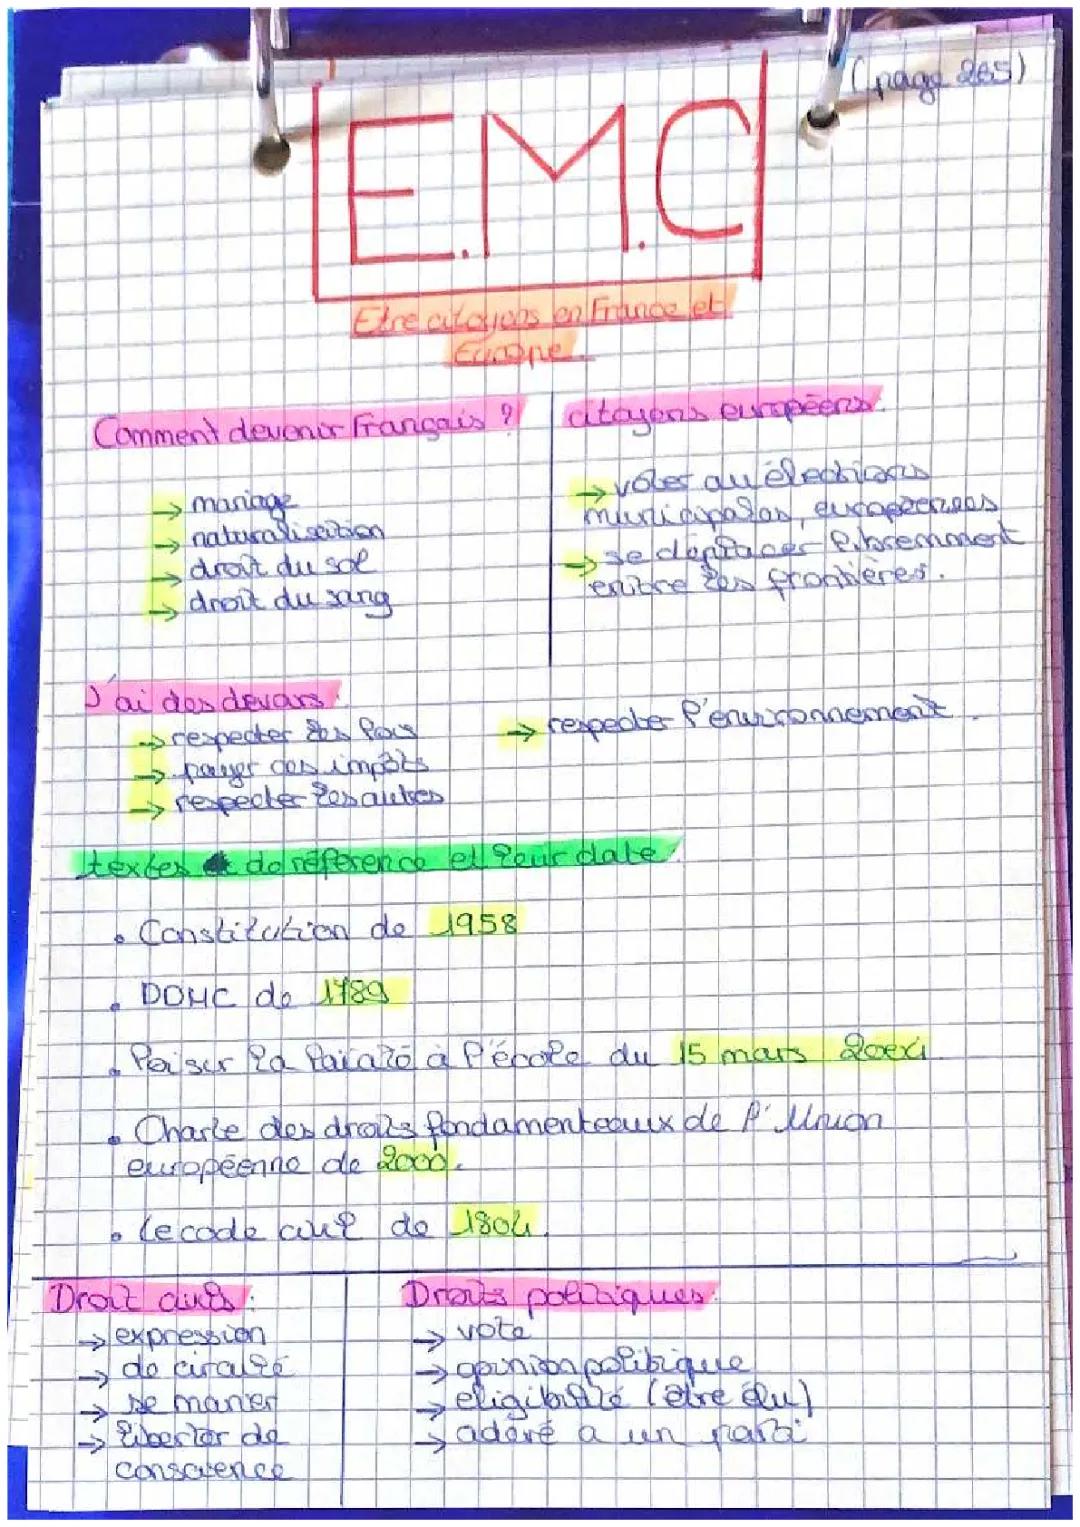 (page 265)
E.M.C
Etre citoyens en France et
Europe.
Comment devenir Français ?
→ mariage
→ naturalisation
→ droit du sol
→ droit du sang
citoyens européens.
→ voter au élections
municipales, européennes
→ se déplacer librement
entre les frontières.
J'ai des devoirs:
→ respecter les lois
→ payer des impôts
→ respecter les autres
→ respecter l'environnement.
textes de réference et leur date:
• Constitution de 1958
• DDHC de 1789
• loi sur la laïcité à l'école du 15 mars 2004.
• Charte des droits fondamenteaux de l'Union
européenne de 2000.
• le code civil de 1804.
Droit civils :
→ expression
→ de circulé
→ se marier
→ liberter de
conscience
Droits politiques:
→ vote
→ opinion politique
→ eligibilité (être élu)
→ adéré a un parti